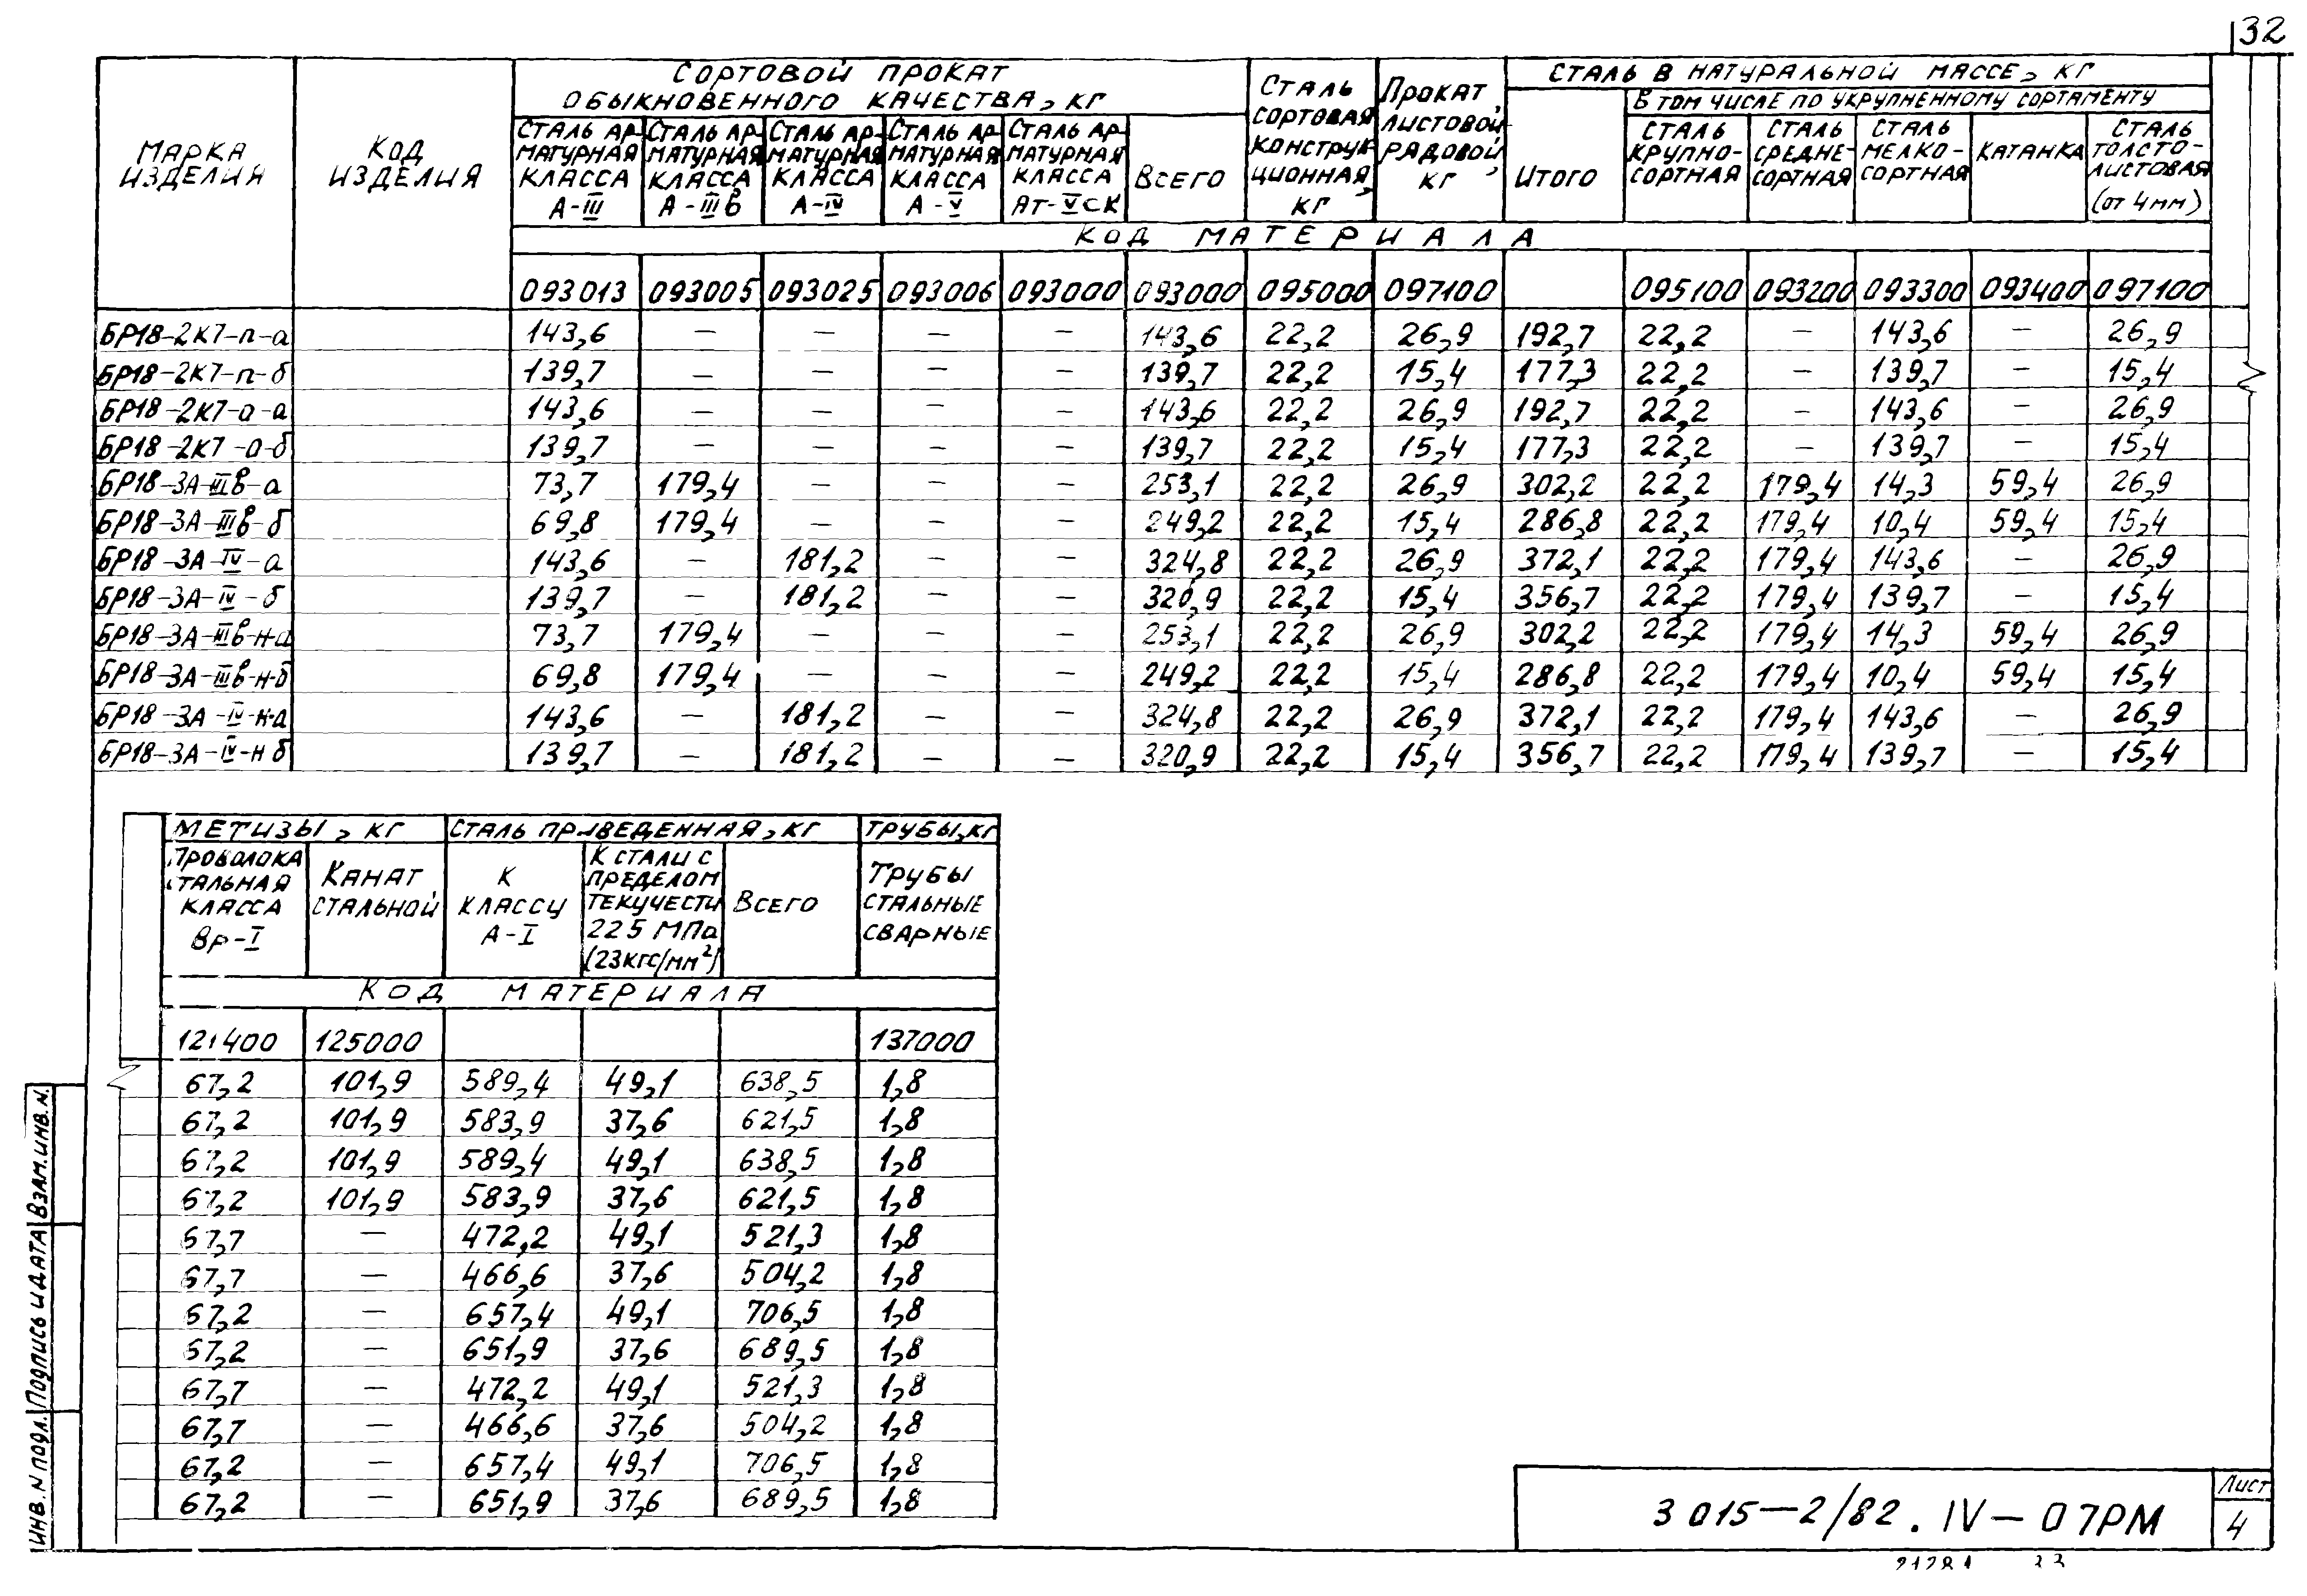 32
МАРКА ИЗДЕЛИЯ | КОД ИЗДЕЛИЯ | СОРТОВОЙ ПРОКАТ ОБЫКНОВЕННОГО КАЧЕСТВА, КГ | СТАЛЬ СОРТОВАЯ КОНСТРУКЦИОННАЯ, КГ | ПРОКАТ ЛИСТОВОЙ РЯДОВОЙ, КГ | СТАЛЬ В НАТУРАЛЬНОЙ МАССЕ, КГ
ИТОГО | В ТОМ ЧИСЛЕ ПО УКРУПНЕННОМУ СОРТАМЕНТУ
СТАЛЬ АРМАТУРНАЯ КЛАССА А-III | СТАЛЬ АРМАТУРНАЯ КЛАССА А-IIIв | СТАЛЬ АРМАТУРНАЯ КЛАССА А-IV | СТАЛЬ АРМАТУРНАЯ КЛАССА А-V | СТАЛЬ АРМАТУРНАЯ КЛАССА АТ-VCK | ВСЕГО | СТАЛЬ КРУПНО-СОРТНАЯ | СТАЛЬ СРЕДНЕ-СОРТНАЯ | СТАЛЬ МЕЛКО-СОРТНАЯ | КАТАНКА | СТАЛЬ ТОЛСТО-ЛИСТОВАЯ (от 4мм)
КОД МАТЕРИАЛА
093013 | 093005 | 093025 | 093006 | 093000 | 093000 | 095000 | 097100 | 095100 | 093200 | 093300 | 093400 | 097100
БР18-2К7-п-а | 143,6 | — | — | — | — | 143,6 | 22,2 | 26,9 | 192,7 | 22,2 | — | 143,6 | — | 26,9
БР18-2К7-п-б | 139,7 | — | — | — | — | 139,7 | 22,2 | 15,4 | 177,3 | 22,2 | — | 139,7 | — | 15,4
БР18-2К7-а-а | 143,6 | — | — | — | — | 143,6 | 22,2 | 26,9 | 192,7 | 22,2 | — | 143,6 | — | 26,9
БР18-2К7-а-б | 139,7 | — | — | — | — | 139,7 | 22,2 | 15,4 | 177,3 | 22,2 | — | 139,7 | — | 15,4
БР18-3А-IIIв-а | 73,7 | 179,4 | — | — | — | 253,1 | 22,2 | 26,9 | 302,2 | 22,2 | 179,4 | 14,3 | 59,4 | 26,9
БР18-3А-IIIв-б | 69,8 | 179,4 | — | — | — | 249,2 | 22,2 | 15,4 | 286,8 | 22,2 | 179,4 | 10,4 | 59,4 | 15,4
БР18-3А-IV-а | 143,6 | — | 181,2 | — | — | 324,8 | 22,2 | 26,9 | 372,1 | 22,2 | 179,4 | 143,6 | — | 26,9
БР18-3А-IV-б | 139,7 | — | 181,2 | — | — | 320,9 | 22,2 | 15,4 | 356,7 | 22,2 | 179,4 | 139,7 | — | 15,4
БР18-3А-IIIв-н-а | 73,7 | 179,4 | — | — | — | 253,1 | 22,2 | 26,9 | 302,2 | 22,2 | 179,4 | 14,3 | 59,4 | 26,9
БР18-3А-IIIв-н-б | 69,8 | 179,4 | — | — | — | 249,2 | 22,2 | 15,4 | 286,8 | 22,2 | 179,4 | 10,4 | 59,4 | 15,4
БР18-3А-IV-н-а | 143,6 | — | 181,2 | — | — | 324,8 | 22,2 | 26,9 | 372,1 | 22,2 | 179,4 | 143,6 | — | 26,9
БР18-3А-IV-н б | 139,7 | — | 181,2 | — | — | 320,9 | 22,2 | 15,4 | 356,7 | 22,2 | 179,4 | 139,7 | — | 15,4
МЕТИЗЫ, КГ | СТАЛЬ ПРИВЕДЕННАЯ, КГ | ТРУБЫ, КГ
ПРОВОЛОКА СТАЛЬНАЯ КЛАССА Вр-I | КАНАТ СТАЛЬНОЙ | К КЛАССУ А-I | К СТАЛИ С ПРЕДЕЛОМ ТЕКУЧЕСТИ 225 МПа (23кгс/мм²) | ВСЕГО | ТРУБЫ СТАЛЬНЫЕ СВАРНЫЕ
КОД МАТЕРИАЛА
121400 | 125000 | 137000
67,2 | 101,9 | 589,4 | 49,1 | 638,5 | 1,8
67,2 | 101,9 | 583,9 | 37,6 | 621,5 | 1,8
67,2 | 101,9 | 589,4 | 49,1 | 638,5 | 1,8
67,2 | 101,9 | 583,9 | 37,6 | 621,5 | 1,8
67,7 | — | 472,2 | 49,1 | 521,3 | 1,8
67,7 | — | 466,6 | 37,6 | 504,2 | 1,8
67,2 | — | 657,4 | 49,1 | 706,5 | 1,8
67,2 | — | 651,9 | 37,6 | 689,5 | 1,8
67,7 | — | 472,2 | 49,1 | 521,3 | 1,8
67,7 | — | 466,6 | 37,6 | 504,2 | 1,8
67,2 | — | 657,4 | 49,1 | 706,5 | 1,8
67,2 | — | 651,9 | 37,6 | 689,5 | 1,8
ИНВ. N ПОДЛ. | ПОДПИСЬ И ДАТА | ВЗАМ. ИНВ. N.
3 015-2/82. IV-07РМ
Лист
4